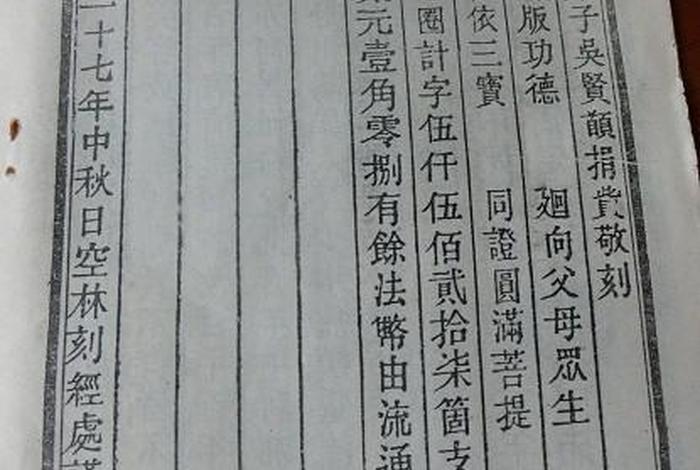 子吳賢顗捐貲敬刻
版功德 廻向父母眾生
依三寶 同證圓滿菩提
圈計字伍仟伍佰貳拾柒箇支
元壹角零捌有餘法幣由流通
二十七年中秋日空林刻經處謹